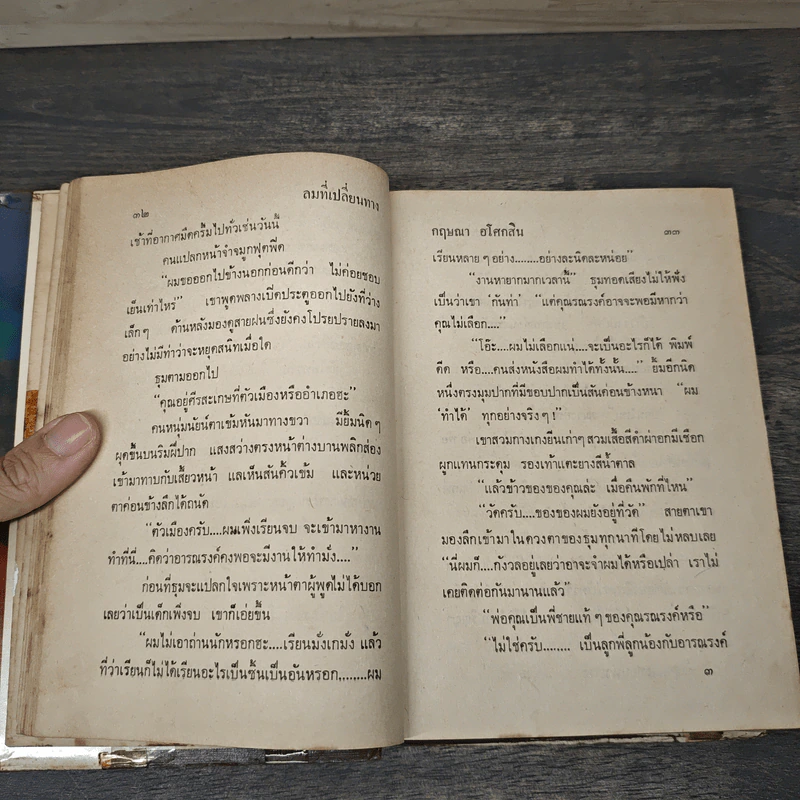 ๓๒
ลมที่เปลี่ยนทาง
เช้าที่อากาศมืดครึ้มไปทั่วเช่นวันนี้
คนแปลกหน้าจำจมูกฟุดฟิด
“ผมขอออกไปข้างนอกก่อนดีกว่า ไม่ค่อยชอบ
เย็นเท่าไหร่” เขาพูดพลางเปิดประตูออกไปยังที่ว่าง
เล็กๆ ด้านหลังมองดูสายฝนซึ่งยังคงโปรยปรายลงมา
อย่างไม่มีท่าว่าจะหยุดสนิทเมื่อใด
ธุมตามออกไป
“คุณอยู่ศีรสะเกษที่ตัวเมืองหรืออำเภอฮะ”
คนหนุ่มนัยน์ตาเข้มหันมาทางขวา มียิ้มนิดๆ
ผุดขึ้นบนริมฝีปาก แสงสว่างตรงหน้าต่างบานพลิกส่อง
เข้ามาทาบกับเสี้ยวหน้า แลเห็นสันคิ้วเข้ม และหน่วย
ตาค่อนข้างลึกได้ถนัด
“ตัวเมืองครับ....ผมเพิ่งเรียนจบ จะเข้ามาหางาน
ทำที่นี่....คิดว่าอารณรงค์คงพอจะมีงานให้ทำมั่ง....”
ก่อนที่ธุมจะแปลกใจเพราะหน้าตาผู้พูดไม่ได้บอก
เลยว่าเป็นเด็กเพิ่งจบ เขาก็เอ่ยขึ้น
“ผมไม่เอาถ่านนักหรอกฮะ....เรียนมั่งเกมั่ง แล้ว
ที่ว่าเรียนก็ไม่ได้เรียนอะไรเป็นชิ้นเป็นอันหรอก........ผม
กฤษณา อโศกสิน
๓๓
เรียนหลายๆอย่าง........อย่างละนิดละหน่อย”
“งานหายากมากเวลานี้” ธุมทอดเสียงไม่ให้ฟัง
เป็นว่าเขา ‘กันท่า’ “แต่คุณรณรงค์อาจจะพอมีหากว่า
คุณไม่เลือก....”
“โอ๊ะ....ผมไม่เลือกแน่....จะเป็นอะไรก็ได้ พิมพ์
ดีด หรือ....คนส่งหนังสือผมทำได้ทั้งนั้น....” ยิ้มอีกนิด
หนึ่งตรงมุมปากที่มีขอบปากเป็นสันค่อนข้างหนา “ผม
‘ทำได้’ ทุกอย่างจริงๆ!”
เขาสวมกางเกงยีนเก่าๆสวมเสื้อสีดำผ่าอกมีเชือก
ผูกแทนกระดุม รองเท้าแตะยางสีน้ำตาล
“แล้วข้าวของของคุณล่ะ เมื่อคืนพักที่ไหน”
“วัดครับ....ของของผมยังอยู่ที่วัด” สายตาเขา
มองลึกเข้ามาในดวงตาของธุมทุกนาทีโดยไม่หลบเลย
“นี่ผมก็....กังวลอยู่เลยว่าอาจะจำผมได้หรือเปล่า เราไม่
เคยติดต่อกันมานานแล้ว”
“พ่อคุณเป็นพี่ชายแท้ๆของคุณรณรงค์หรือ”
“ไม่ใช่ครับ........ เป็นลูกพี่ลูกน้องกับอารณรงค์
๓